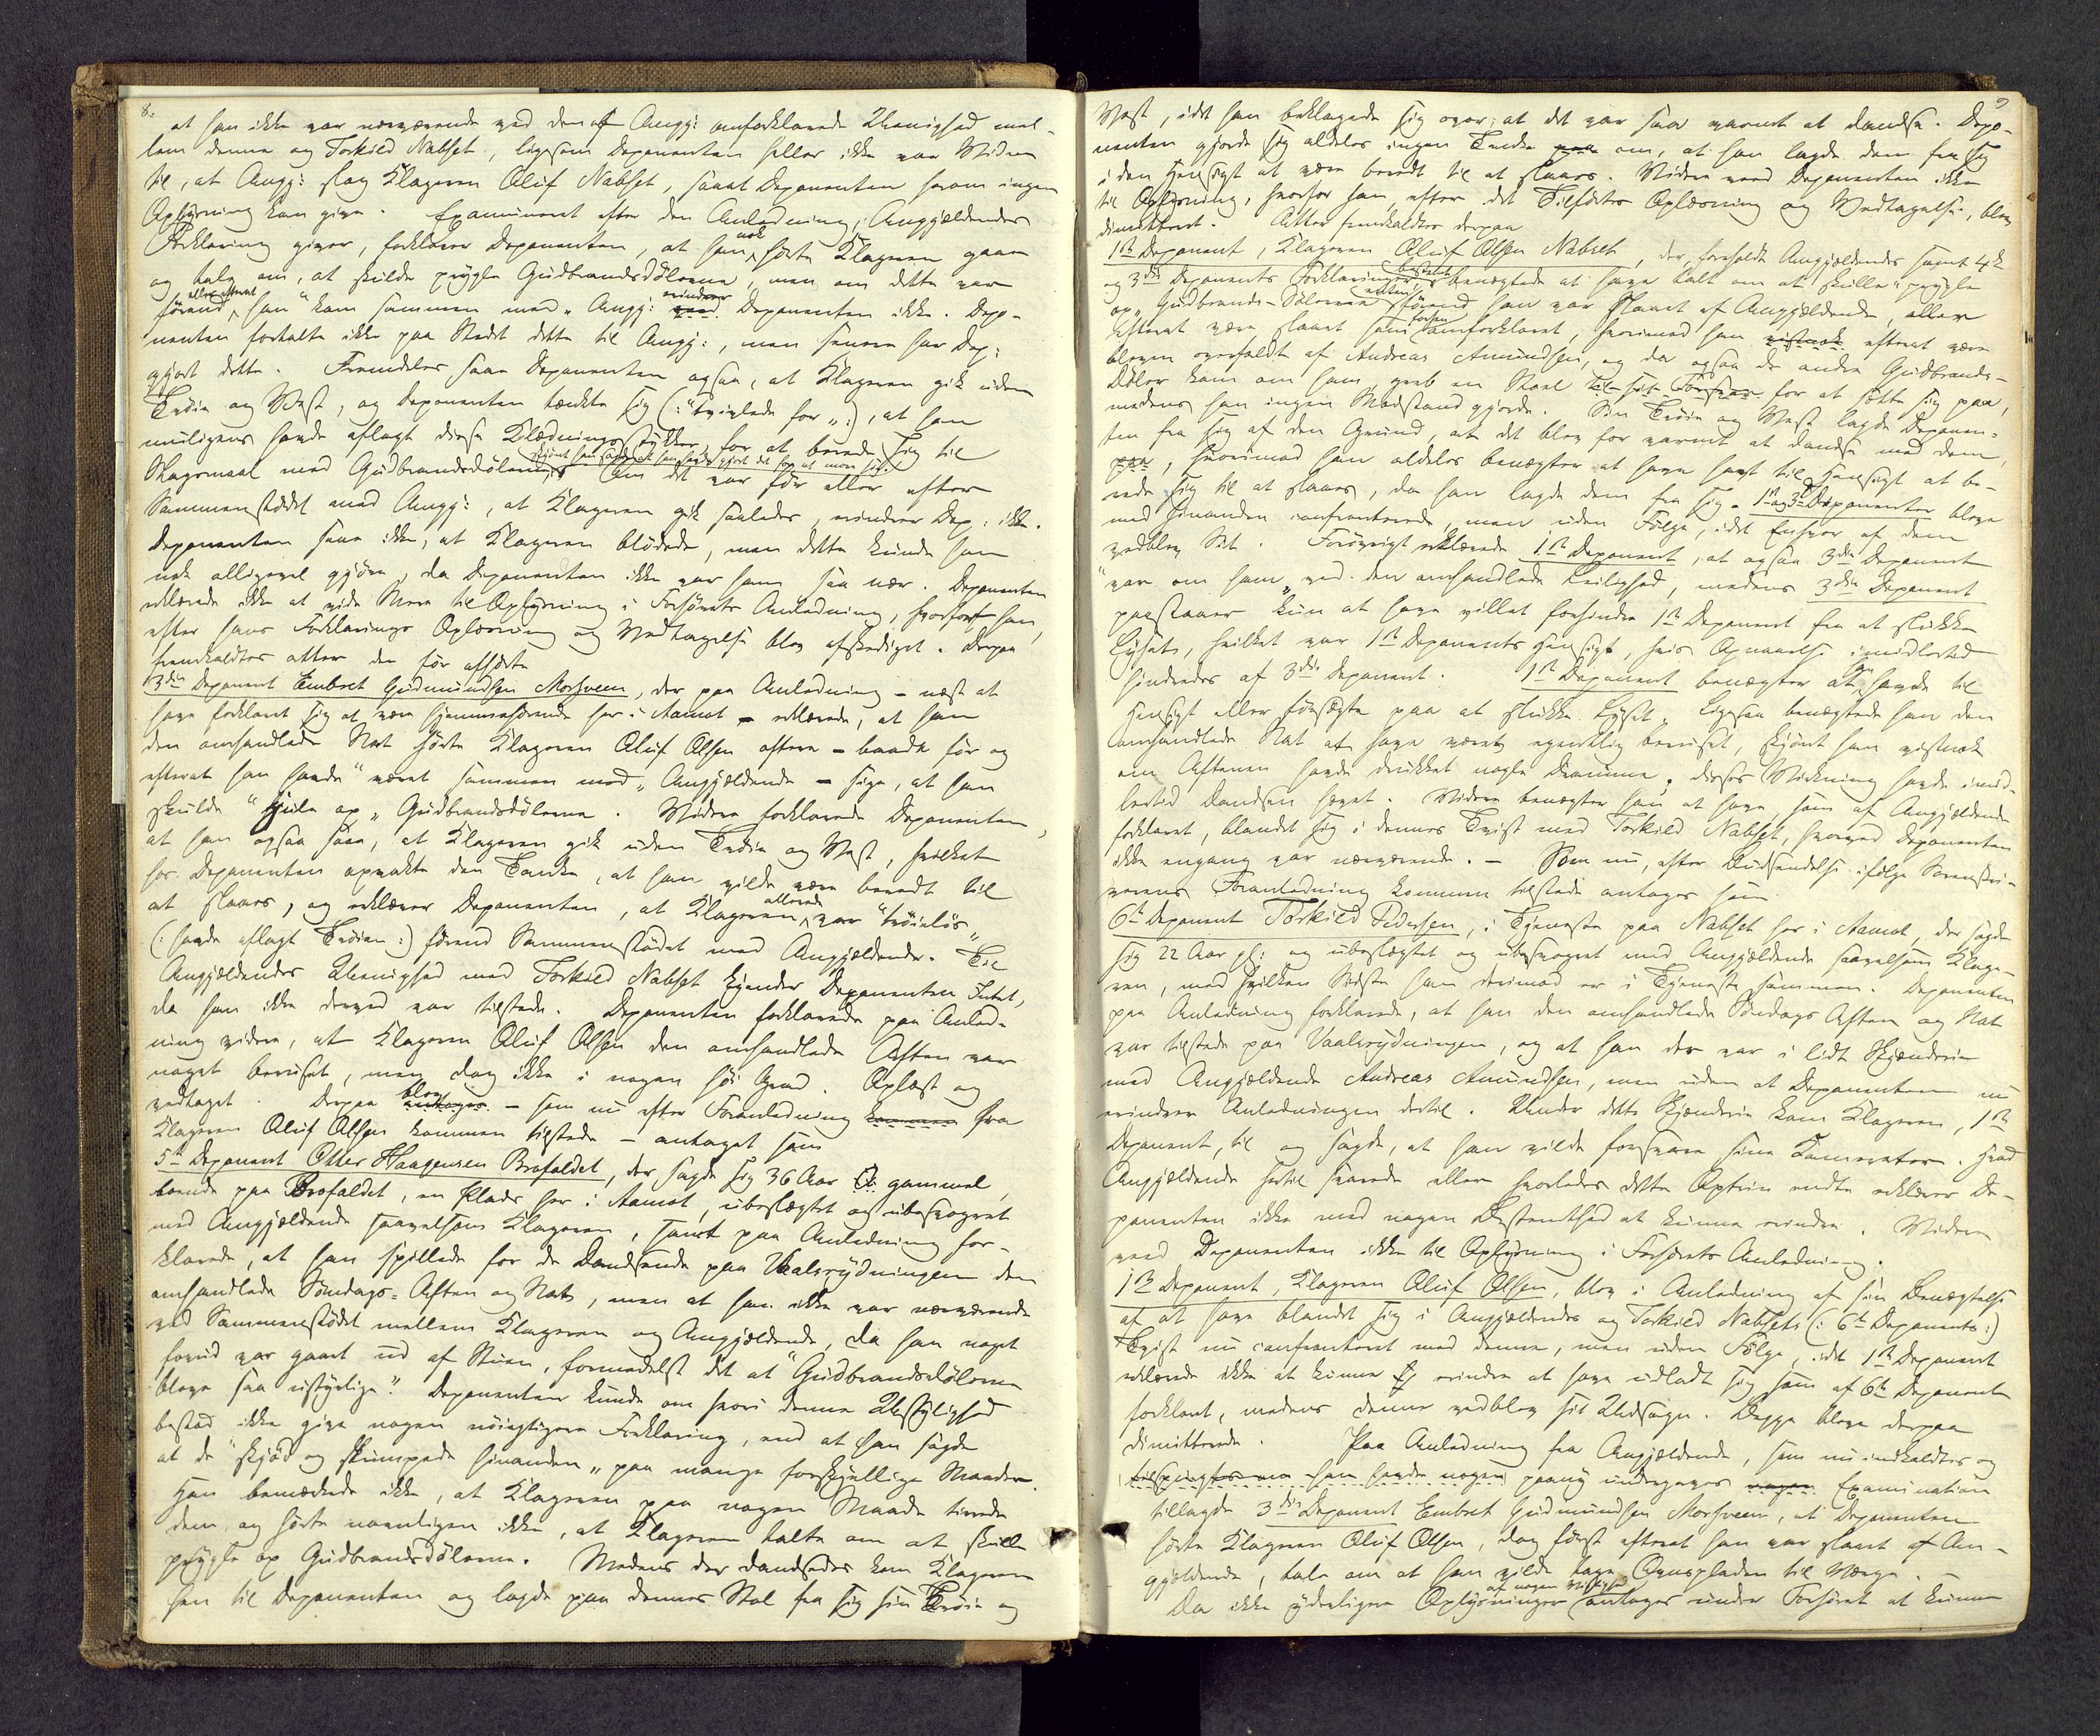 8.
at han ikke var nærværende ved den af Angj: omforklarede Uenighed mel-
lem denne og Torkild Nabset, ligesom Deponenten heller ikke var Vidne
til, at Angj: slog Klageren Oluf Nabset, saaat Deponenten herom ingen
Oplysning kan give. Examineret efter den Anledning, Angjældendes
Forklaring giver, forklarer Deponenten, at han nok hørte Klageren gaae
og tale om, at skulde prygle Gudbrandsdølerne, men om dette var
førend eller efterat han "kom sammen med" Angj: erindrer Deponenten ikke. Depo-
nenten fortalte ikke paa Stedet dette til Angj:, men senere har Dep:
gjort dette. Fremdeles saae Deponenten ogsaa, at Klageren gik uden
Trøie og Vest, og Deponenten tænkte sig (: "tvivlede for" :), at han
muligens havde aflagt disse Klædningsstykker for at berede sig til
Slagsmaal med Gudbrandsdølerne, Om det var før eller efter
Sammenstødet med Angj:, at Klageren gik saaledes, erindrer Dep: ikke.
Deponenten saae ikke, at Klageren blødede, men dette kunde han
nok alligevel gjøre, da Deponenten ikke var ham saa nær. Deponenten
erklærede ikke at vide Mere til Oplysning i Forhørets Anledning, hvorfor han,
efter hans Forklarings Oplæsning og Vedtagelse blev afskediget. Derpaa
fremkaldtes atter den før afhørte
3die Deponent Embret Gudmundsen Morsveen, der paa Anledning – næst at
have forklaret sig at være hjemmehørende her i Aamot – erklærede, at han
den omhandlede Nat hørte Klageren Oluf Olsen oftere – baade før og
efterat han havde "været sammen med" Angjældende – sige, at han
skulde "hjule op" Gudbrandsdølerne. Videre forklarede Deponenten,
at han ogsaa saae, at Klageren gik uden Trøie og Vest, hvilket
hos Deponenten opvakte den Tanke, at han vilde være beredt til
at slaaes, og erklærer Deponenten, at Klageren allerede var "trøieløs"
(: havde aflagt Trøien :) førend Sammenstødet med Angjældende. Til
Angjældendes Uenighed med Torkild Nabset kjender Deponenten Intet,
da han ikke derved var tilstede. Deponenten forklarede paa Anled-
ning videre, at Klageren Oluf Olsen den omhandlede Aften var
noget beruset, men dog ikke i nogen høi Grad. Oplæst og
vedtaget. Derpaa blev – som nu efter Foranledning fra
Klageren Oluf Olsen kommen tilstede – antaget som
5te Deponent Otter Haagensen Brofaldet, der sagde sig 36 Aar gammel,
boende paa Brofaldet, en Plads her i Aamot, ubeslægtet og ubesvogret
med Angjældende saavelsom Klageren, samt paa Anledning for-
klarede, at han spillede for de Dandsende paa Vaalsrydningen den
omhandlede Søndags-Aften og Nat, men at han ikke var nærværende
ved Sammenstødet mellem Klageren og Angjældende, da han noget
forud var gaaet ud af Stuen, formedelst det at "Gudbrandsdølerne
bleve saa ustyrlige". Deponenten kunde om hvori denne Ustyrlighed
bestod ikke give nogen nøiagtigere Forklaring, end at han sagde
at de "skjød og skumpede hinanden" paa mange forskjellige Maader.
Han bemærkede ikke, at Klageren paa nogen Maade tirrede
dem, og hørte navnligen ikke, at Klageren talte om at skulle
prygle op Gudbrandsdølerne. Medens der dandsedes kom Klageren
hen til Deponenten og lagde paa dennes Stol fra sig sin Trøie og
9
Vest, idet han beklagede sig over, at det var saa varmt at dandse. Depo-
nenten gjorde sig aldeles ingen Tanke om, at han lagde dem fra sig
i den Hensigt at være beredt til at slaaes. Videre veed Deponenten ikke
til Oplysning, hvorfor han, efter det Tilførtes Oplæsning og Vedtagelse, blev
dimitteret. Atter fremkaldtes derpaa
1ste Deponent, Klageren Oluf Olsen Nabset, der, foreholdt Angjældendes samt 4de
og 3die Deponents Forklaringer bestemt benægtede at have talt om at skulle "prygle
op" Gudbrands-Dølerne enten førend han var slaaet af Angjældende, eller
efterat være slaaet som forhen omforklaret, hvorimod han efterat være
bleven overfaldt af Andreas Amundsen, og da ogsaa de andre Gudbrands-
Døler kom om ham, greb en Stoel for at sætte sig paa,
medens han ingen Modstand gjorde. Sin Trøie og Vest lagde Deponen-
ten fra sig af den Grund, at det blev for varmt at dandse med dem
paa, hvorimod han aldeles benægter at have havt til Hensigt at be-
rede sig til at slaaes, da han lagde dem fra sig. 1ste og 3die Deponenter bleve
med hinanden confronterede, men uden Følge, idet Enhver af dem
vedblev Sit. Forøvrigt erklærede 1ste Deponent, at ogsaa 3die Deponent
"var om ham" ved den omhandlede Leilighed, medens 3die Deponent
paastaaer kun at have villet forhindre 1ste Deponent fra at slukke
Lyset, hvilket var 1ste Deponents Hensigt, hvis Opnaaelse imidlertid
hindredes af 3die Deponent. 1ste Deponent benægter at han havde til
Hensigt eller forsøgte paa at slukke Lyset. Ligesaa benægtede han den
omhandlede Nat at have været egentlig beruset, skjønt han vistnok
om Aftenen havde drukket nogle Dramme, disses Virkning havde imid-
lertid Dandsen hævet. Videre benægter han at have som af Angjældende
forklaret, blandet sig i dennes Tvist med Torkild Nabset, hvorved Deponenten
ikke engang var nærværende. – Som nu, efter Budsendelse ifølge Sorenskri-
verens Foranledning kommen tilstede antoges som
6te Deponent Torkild Pedersen, i Tjeneste paa Nabset her i Aamot, der sagde
sig 22 Aar gl: og ubeslægtet og ubesvogret med Angjældende saavelsom Klage-
ren, med hvilken Sidste han derimod er i Tjeneste sammen. Deponenten
paa Anledning forklarede, at han den omhandlede Søndags Aften og Nat
var tilstede paa Vaalsrydningen, og at han der var i lidt Skjænderie
med Angjældende Andreas Amundsen, men uden at Deponenten nu
erindrer Anledningen dertil. Under dette Skjænderie kom Klageren, 1ste
Deponent, til og sagde, at han vilde forsvare sine Kamerater. Hvad
Angjældende hertil svarede eller hvorledes dette Optrin endte erklærer De-
ponenten ikke med nogen Bestemthed at kunne erindre. Videre
veed Deponenten ikke til Oplysning i Forhørets Anledning.
1ste Deponent, Klageren Oluf Olsen, blev i Anledning af sin Benægtelse
af at have blandet sig i Angjældendes og Torkild Nabsets (: 6te Deponents :)
Tvist nu confronteret med denne, men uden Følge, idet 1ste Deponent
erklærede ikke at kunne erindre at have udladt sig som af 6te Deponent
forklaret, medens denne vedblev sit Udsagn. Begge bleve derpaa
dimitterede. Paa Anledning fra Angjældende, som nu indkaldtes og
tilspurgtes om han havde nogen paany undergaves Examination
tillagde 3die Deponent Embret Gudmundsen Morsveen, at Deponenten
hørte Klageren Oluf Olsen, dog først efterat han var slaaet af An-
gjældende, tale om at han vilde tage Ovnspladen til Værge. –
Da ikke yderligere Oplysninger af nogen Vigtighed antages under Forhøret at kunne